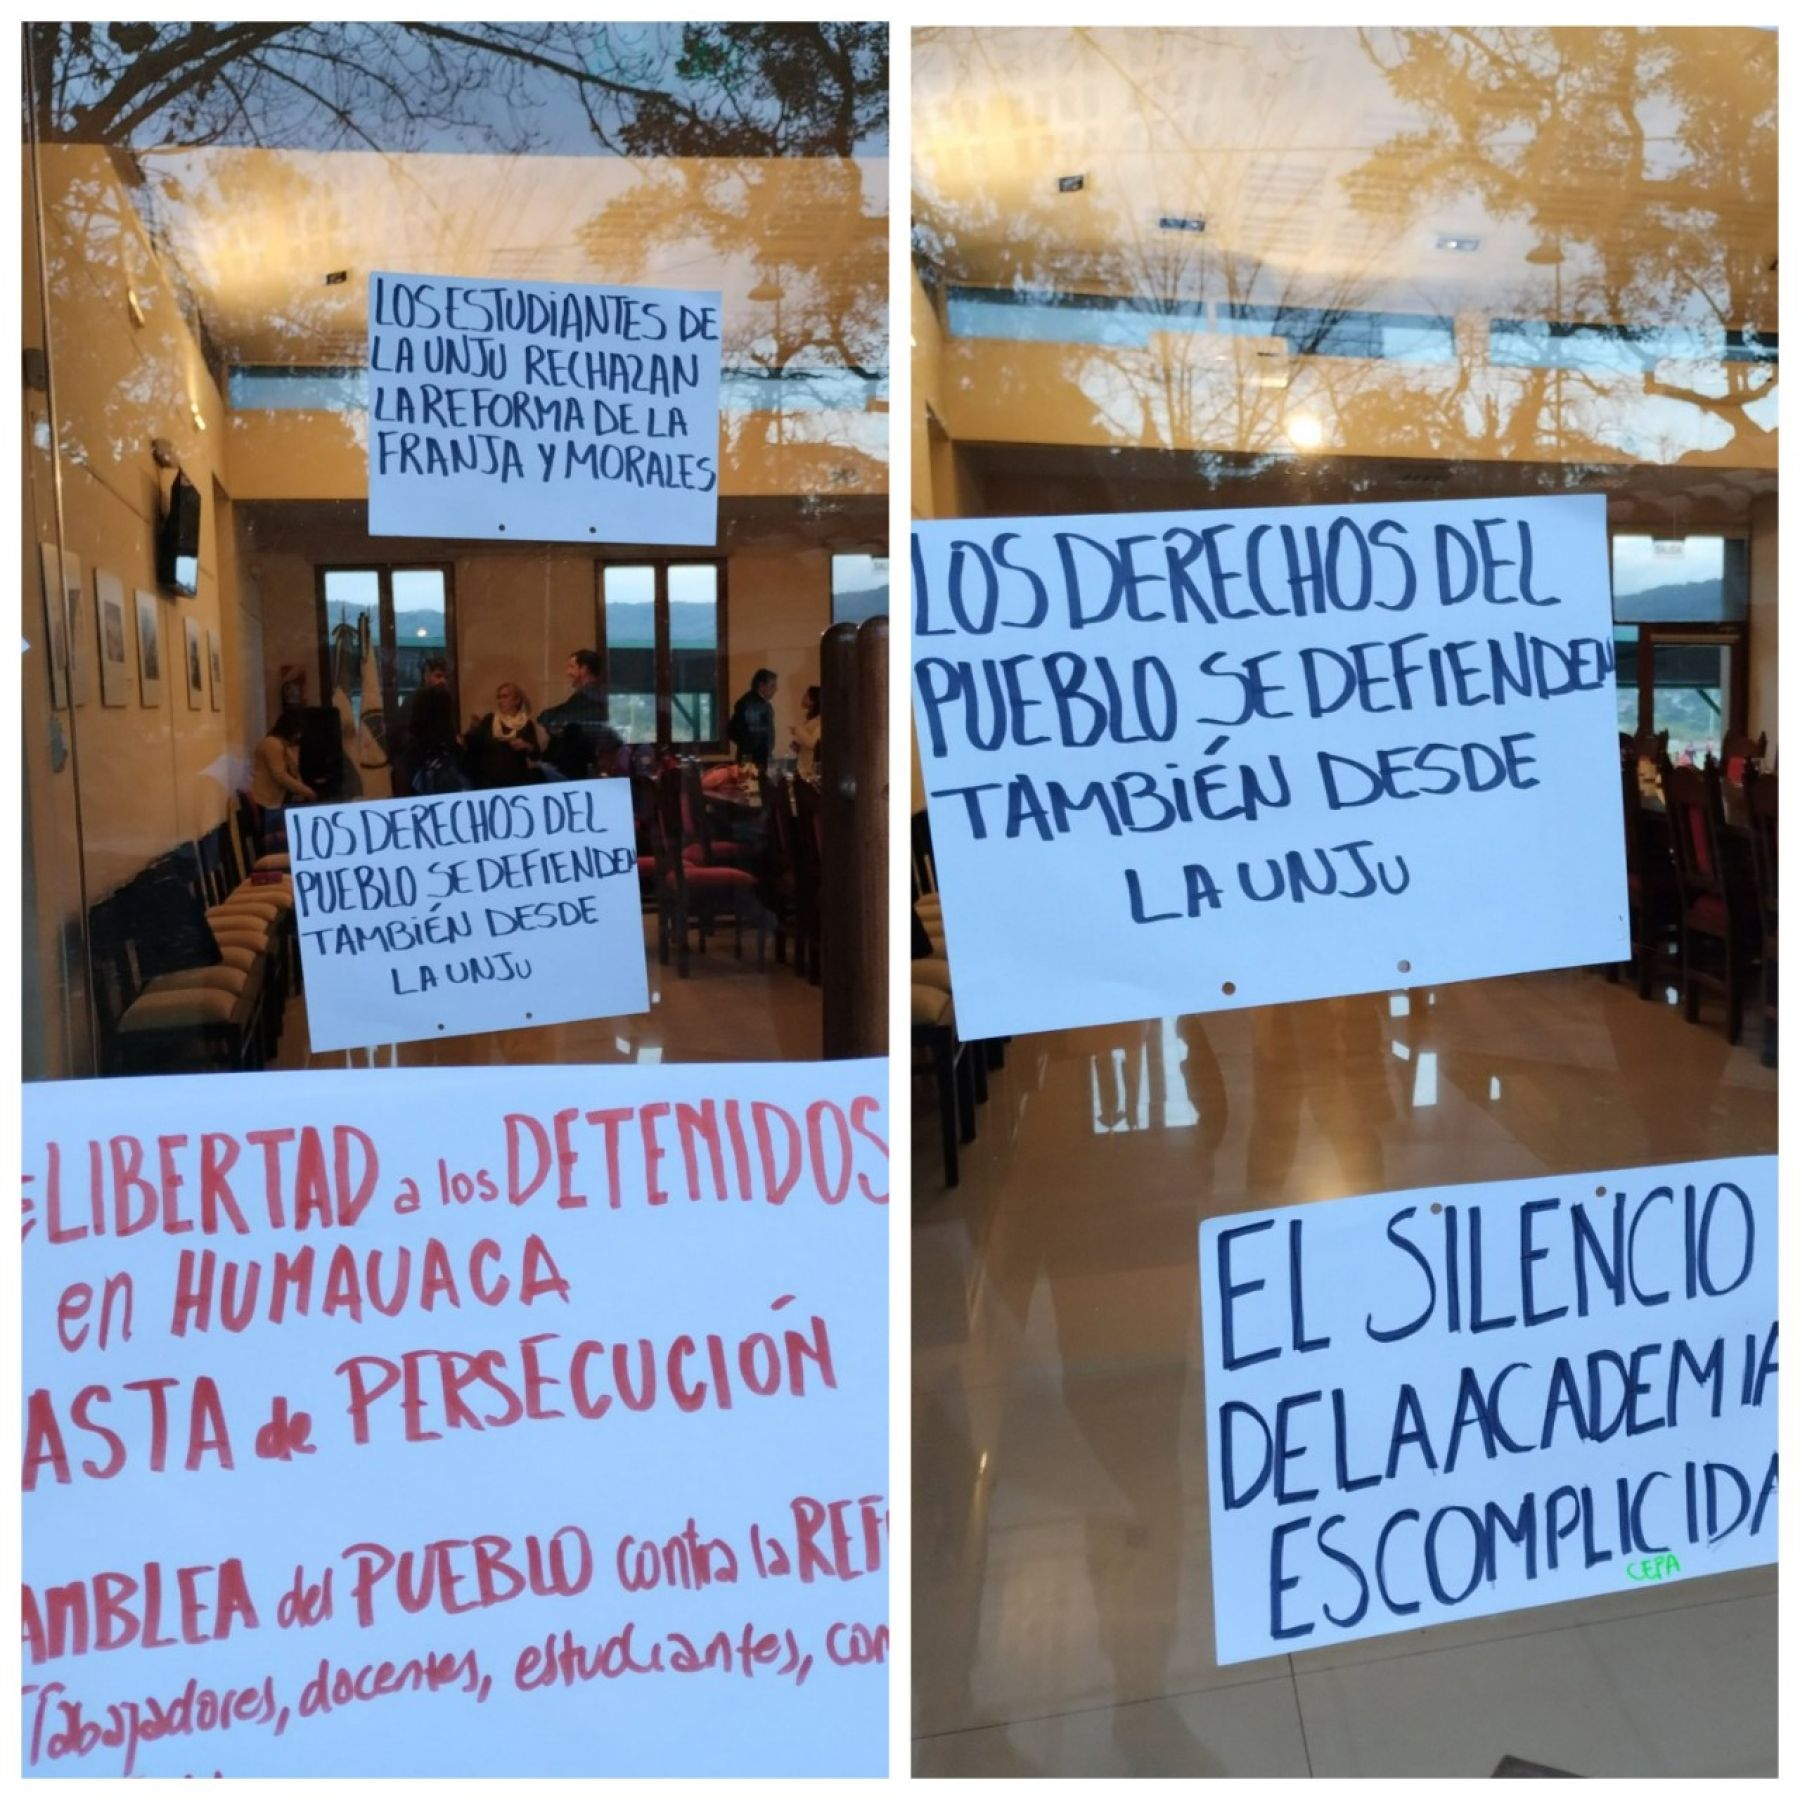 LOS ESTUDIANTES DE
LA UNJU RECHAZAN
LA REFORMA DE LA
FRANJA Y MORALES
LOS DERECHOS DEL
PUEBLO SE DEFIENDEN
TAMBIÉN DESDE
LA UNJU
LIBERTAD a los DETENIDOS
en HUMAUACA
ASTA de PERSECUCIÓN
AMBLEA del PUEBLO contra la REF
Tabajadores, docentes, estudiantes, com
LOS DERECHOS DEL
PUEBLO SE DEFIENDEN
TAMBIÉN DESDE
LA UNJU
SALIDA
EL SILENCIO
DE LA ACADEMIA
ES COMPLICIDA
CEPA